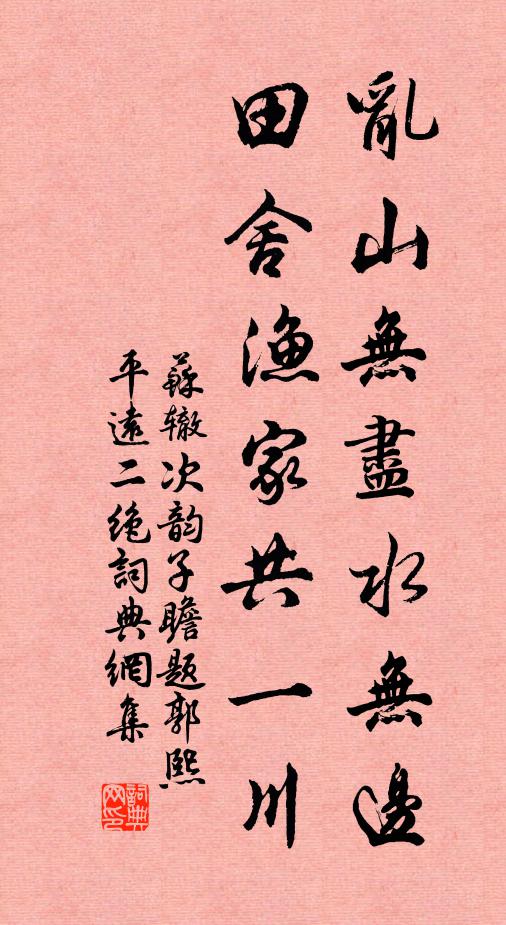 亂山無盡水無邊
田舍漁家共一川
蘇辙次韵子瞻题郭熙
平遠二绝詞典網集
詞典
网印